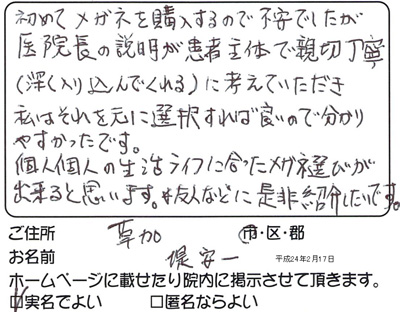 初めてメガネを購入するので不安でしたが
医院長の説明が患者主体で親切丁寧
(深く入り込んでくれる)に考えていただき
私はそれを元に選択すれば良いので分かり
やすかったです。
個人個人の生活ライフに合ったメガネ選びが
出来ると思います。友人などに是非紹介したいです。
ご住所 草加 市・区・郡
お名前 堤 安一 平成24年2月17日
ホームページに載せたり院内に掲示させて頂きます。
□実名でよい □匿名ならよい